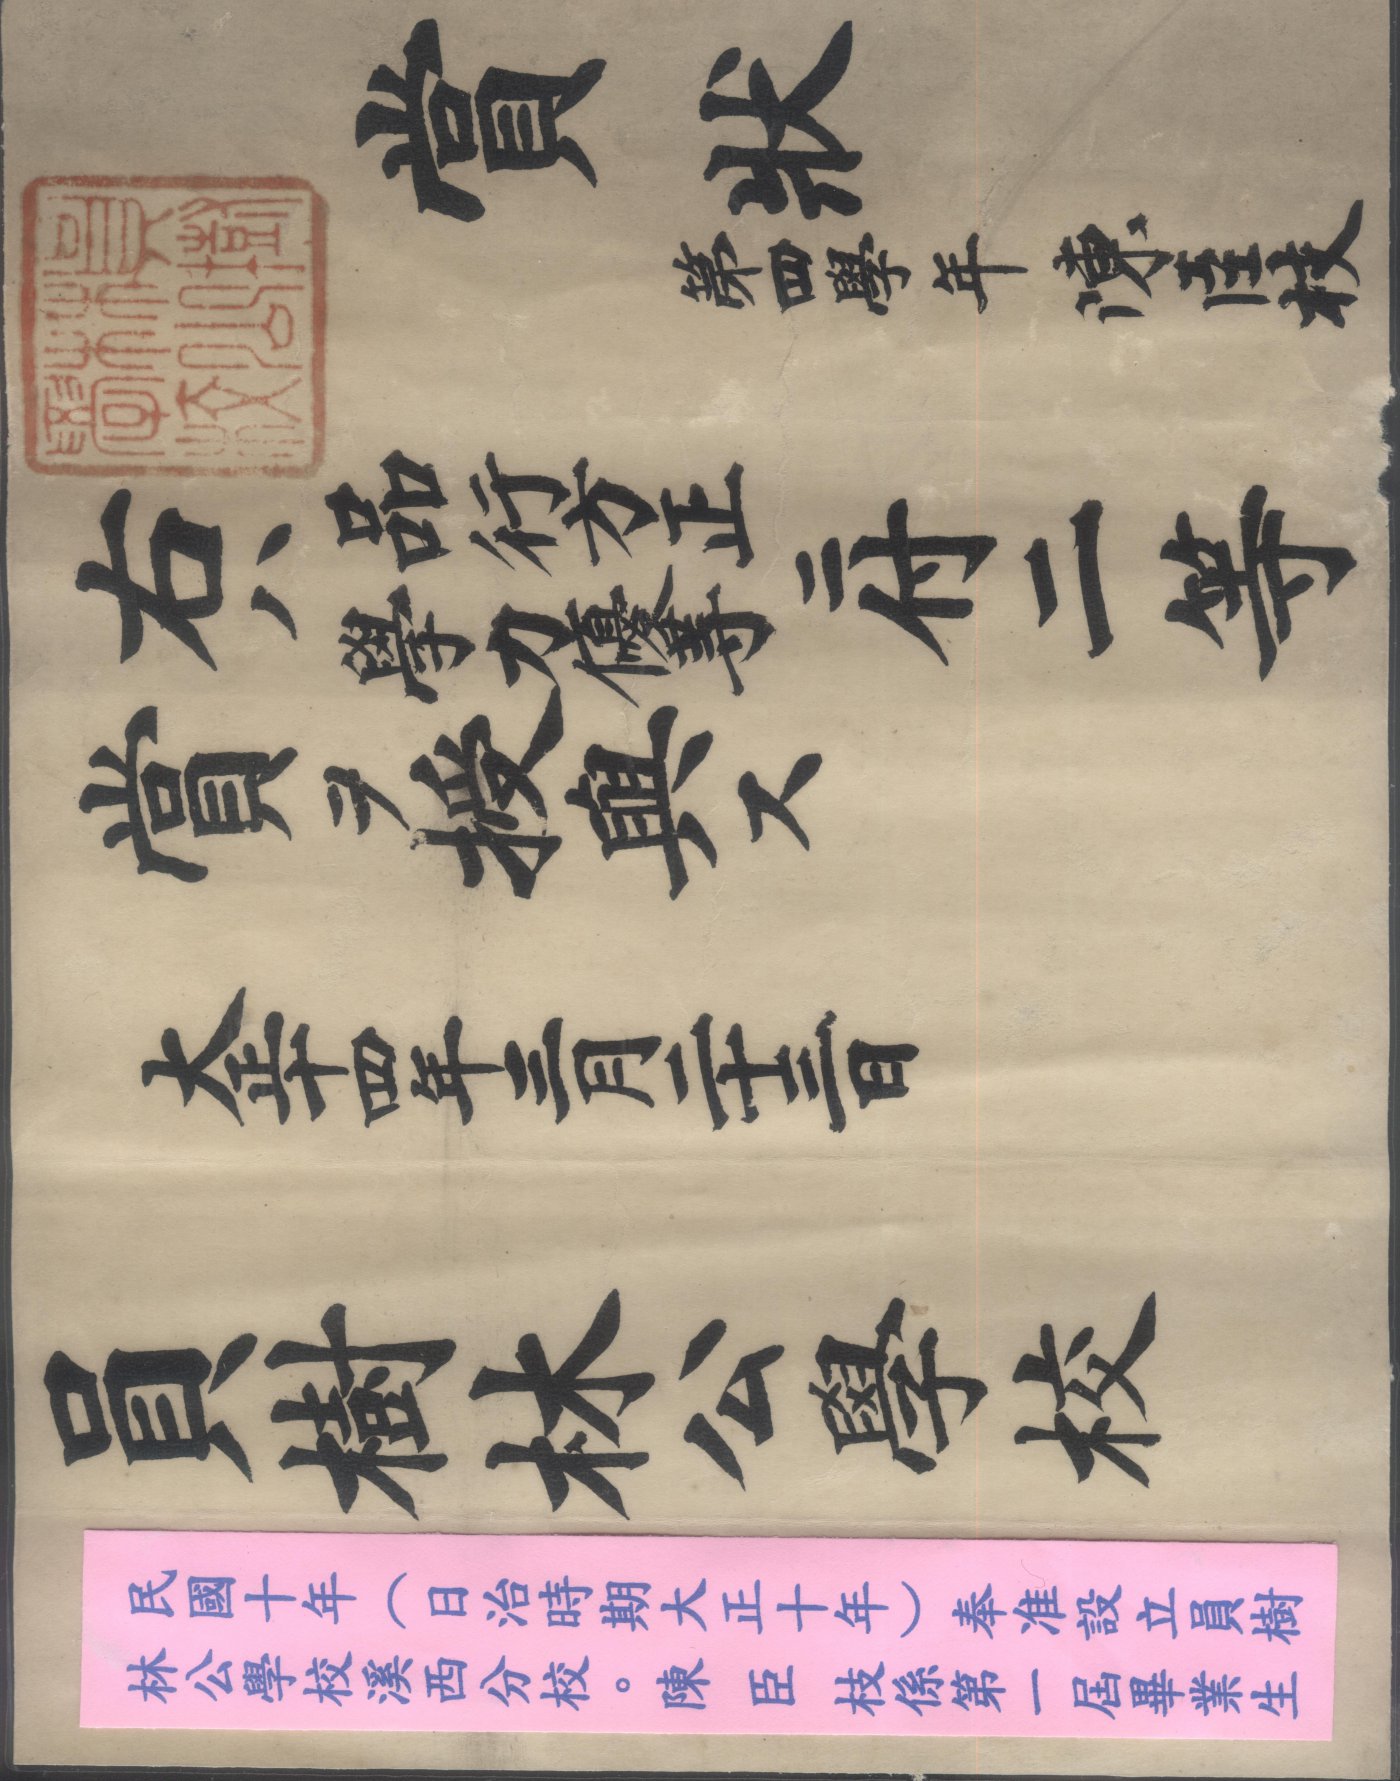 賞狀
第四學年 陳臣枝
右ハ品行方正學力優等ニ付二等
賞ヲ授與ス
大正十四年三月二十三日
員樹林公學校
民國十年(日治時期大正十年)奉准設立員樹
林公學校溪西分校。陳 臣 枝係第一屆畢業生